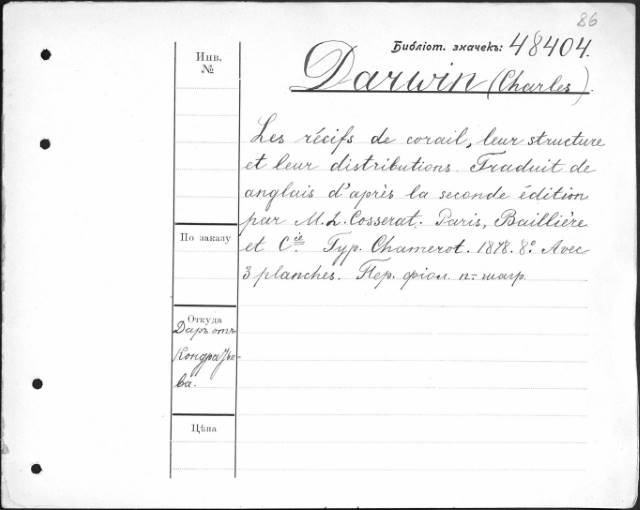 86
Библіот. значекъ: 48404.
Инв.
№
Darwin (Charles).
Les récifs de corail, leur structure
et leur distributions. Traduit de
anglais d'après la seconde édition
par M. L. Cosserat. Paris, Baillière
et Cie. Typ. Chamerot. 1878. 8º. Avec
3 planches. Пер. фіол. п.-шагр.
По заказу
Откуда
Даръ отъ
Кондратье-
ва.
Цѣна